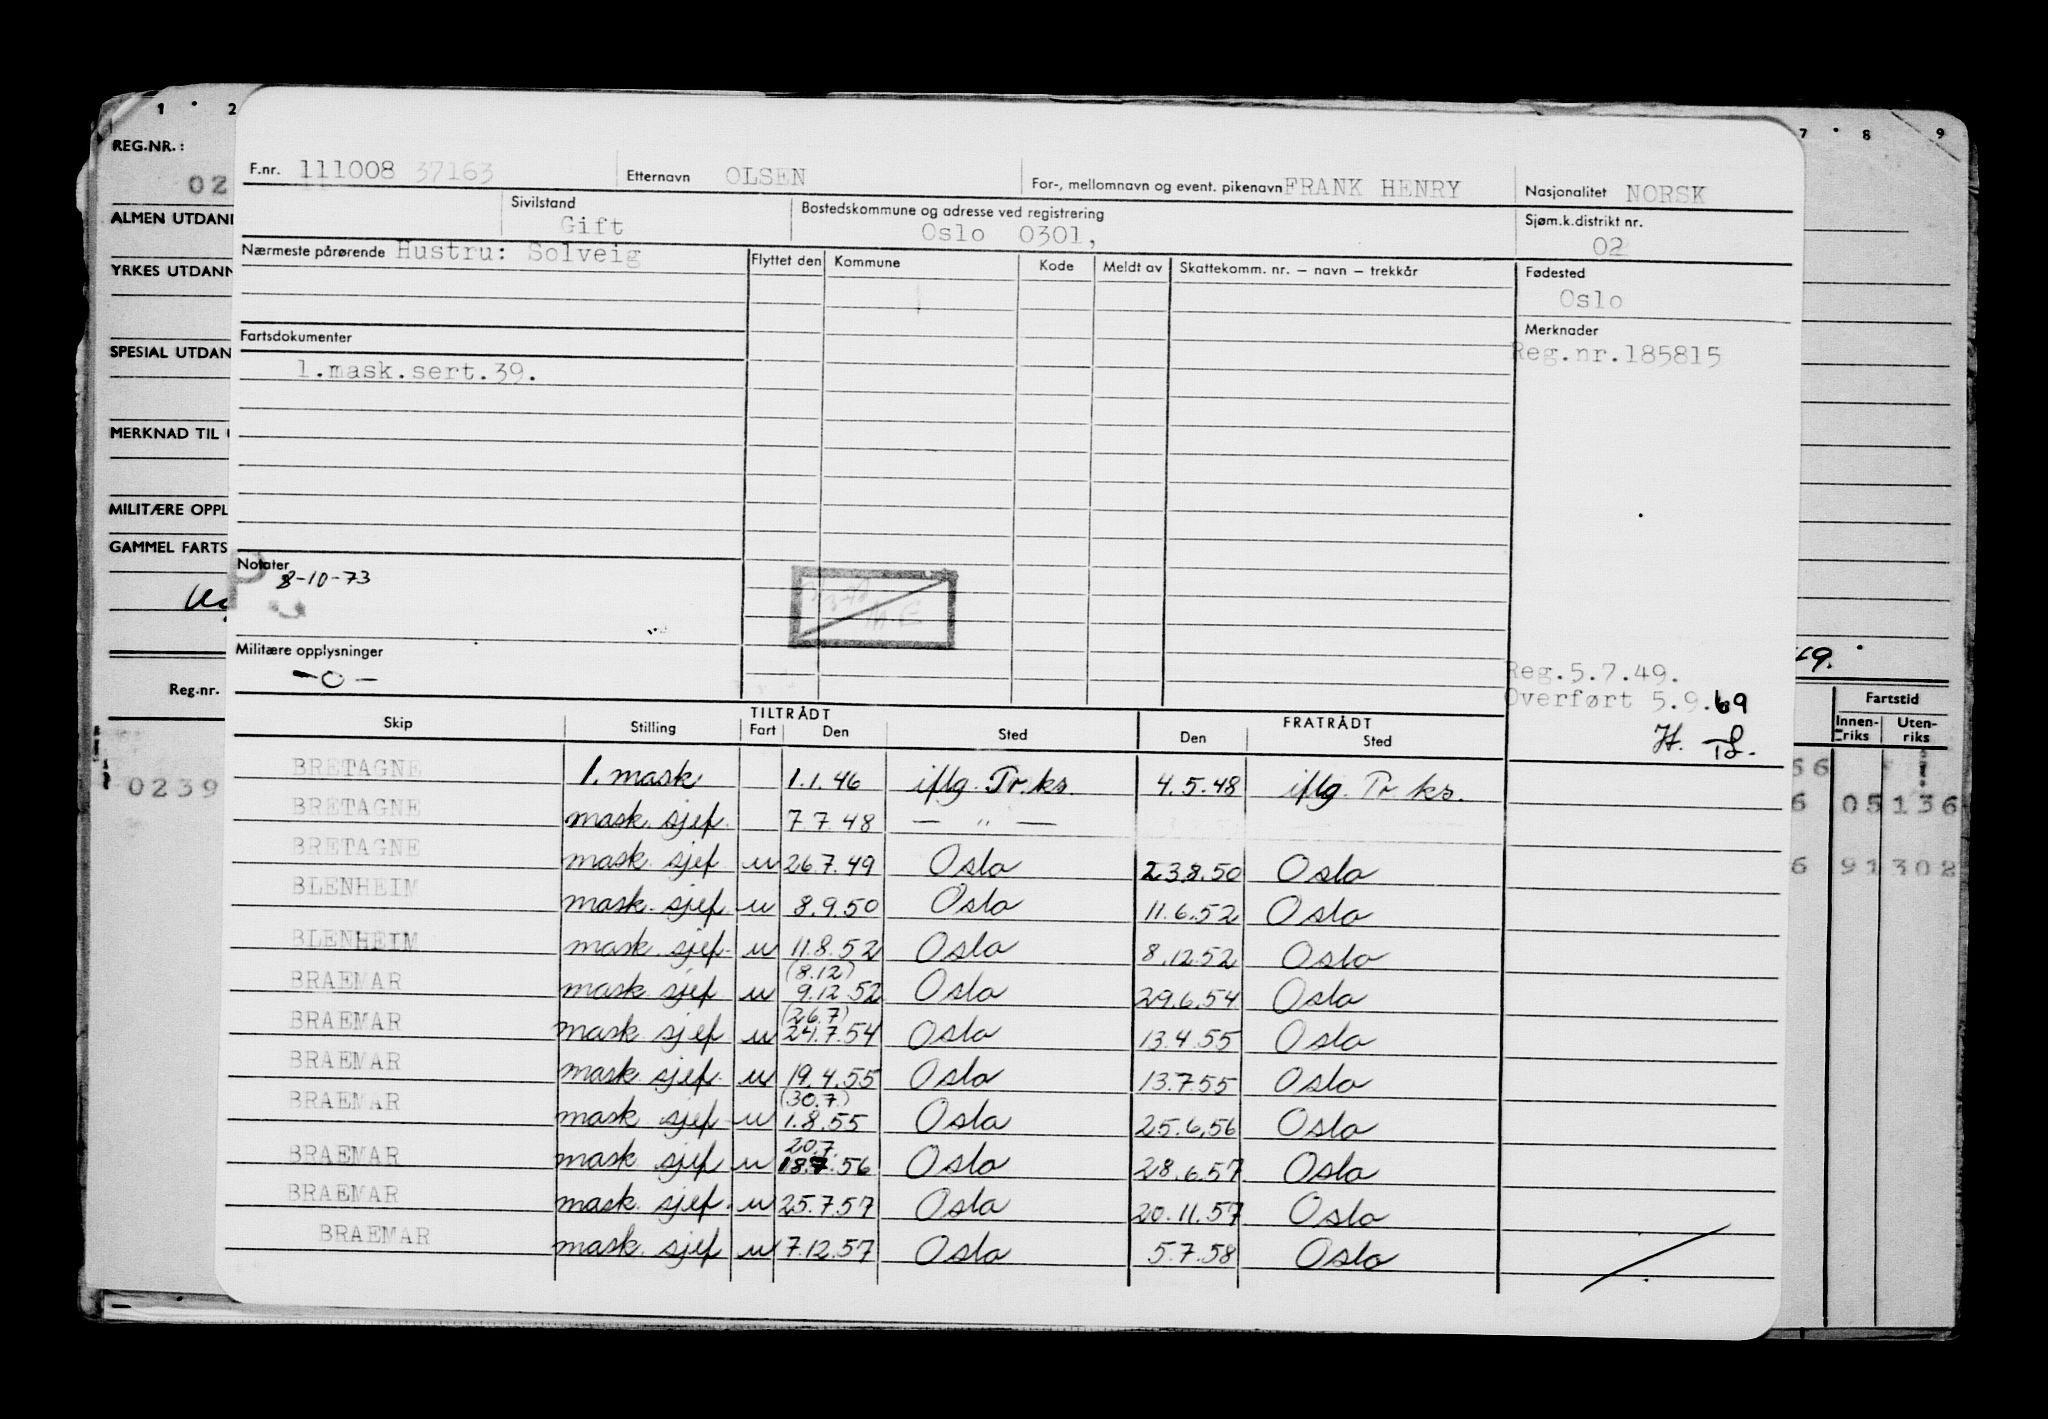 1 2 7 8 9
REG.NR.:
02
ALMEN UTDAN
YRKES UTDANN
SPESIAL UTDAN
MERKNAD TIL
MILITÆRE OPPL
GAMMEL FARTS
Reg.nr.
0239
F.nr. 111008 37163 Etternavn OLSEN For-, mellomnavn og event. pikenavn FRANK HENRY Nasjonalitet NORSK
Sivilstand Gift Bostedskommune og adresse ved registrering Oslo 0301, Sjøm.k.distrikt nr. 02
Nærmeste pårørende Hustru: Solveig Flyttet den Kommune Kode Meldt av Skattekomm. nr. – navn – trekkår Fødested
Oslo
Fartsdokumenter Merknader
1.mask.sert.39. Reg.nr.185815
Notater
8-10-73
Militære opplysninger
-0-
Reg.5.7.49.
Overført 5.9.69
H. TS.
TILTRÅDT FRATRÅDT
Skip Stilling Fart Den Sted Den Sted
BRETAGNE 1. mask 1.1.46 iflg. Tr.ks 4.5.48 iflg. Tr. ks.
BRETAGNE mask. sjef. 7.7.48 — " —
BRETAGNE mask. sjef u 26.7.49 Oslo 23.8.50 Oslo
BLENHEIM mask. sjef u 8.9.50 Oslo 11.6.52 Oslo
BLENHEIM mask. sjef. u 11.8.52 Oslo 8.12.52 Oslo
(8.12)
BRAEMAR mask. sjef u 9.12.52 Oslo 29.6.54 Oslo
(26.7)
BRAEMAR mask. sjef u 24.7.54 Oslo 13.4.55 Oslo
BRAEMAR mask. sjef. u 19.4.55 Oslo 13.7.55 Oslo
(30.7)
BRAEMAR mask. sjef u 1.8.55 Oslo 25.6.56 Oslo
20.7.
BRAEMAR mask. sjef u 18.7.56 Oslo 28.6.57 Oslo
BRAEMAR mask. sjef. u 25.7.57 Oslo 20.11.57 Oslo
BRAEMAR mask. sjef u 7.12.57 Oslo 5.7.58 Oslo
49.
Fartstid
Innen-riks Uten-riks
66
6 05 136
6 91 302